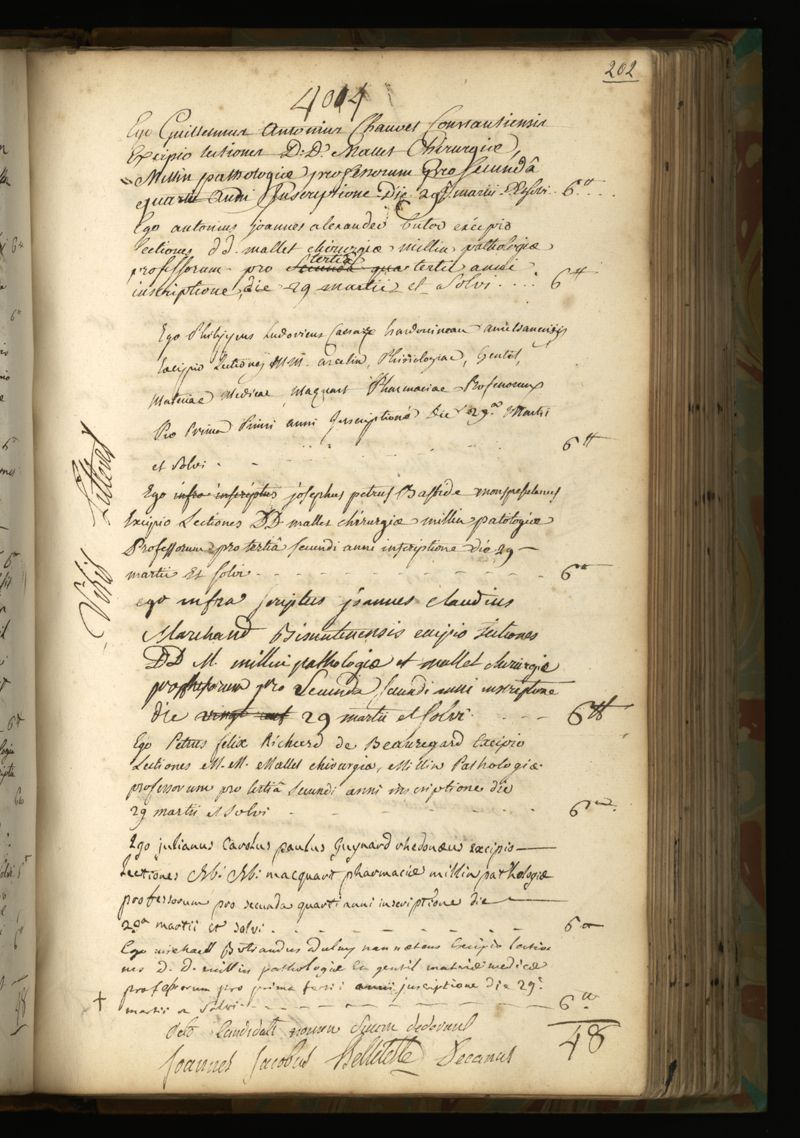 202
4014
Ego Guillelmus Antonius Chauvet Constantiensis
Excipio lectiones D.D. Mallet Chirurgiæ,
Millin pathologiæ professorum pro secundâ
quarti anni Inscriptione Die 29 martii et solvi 6 ₶
Ego antonius joannes alexander butor excipio
Lectiones dd. mallet chirurgiæ millin pathologiæ
professorum pro tertia tertii anni
inscriptione, die 29 martii et solvi 6 ₶
Ego Philippus Ludovicus Cæsar hardouineau
Excipio Lectiones MM. arcelin, Phisiologiae, Gentil,
Materiae Medicae, Macquart Pharmaciae Professorum
Pro Prima Primi anni Inscriptione die 29a Martii
et solvi 6 ₶
Visis Litteris
Ego infra inscriptus josephus petrus Bastide monspeliensis
Excipio Lectiones DD mallet chirurgiæ millin patologiæ
Professorum pro tertiâ secundi anni inscriptione die 29
martii Et solvi 6 ₶
ego infra scriptus joannes claudius
Marchand Bisuntinensis excipio lectiones
DD M. millin pathologiæ et mallet chirurgiæ
professorum pro Secunda secundi anni inscriptione
die vingt neuf 29 martii et solvi 6 ₶
Ego Petrus felix Richard de Beauregard Excipio
Lectiones M. M. Mallet chirurgiæ, Millin Pathologiæ
professorum pro tertiâ secundi anni inscriptione die
29 martii et solvi 6 ₶
Ego julianus carolus paulus Guynard rhedonæus excipio
Lectiones M. M. macquart pharmaciæ millin pathologiæ
professorum pro secunda quarti anni inscriptione die
29a martii et solvi 6 ₶
Ego michaell dulny nannetens Excipio lectio
nes D. D. millin pathologiæ et gentil materiæ medicæ
professorum pro prima tertii anni inscriptione die 29a
martii et solvi 6 ₶
octo Candidati nomen suum dederunt 48
Joannes Jacobus Belleteste Decanus